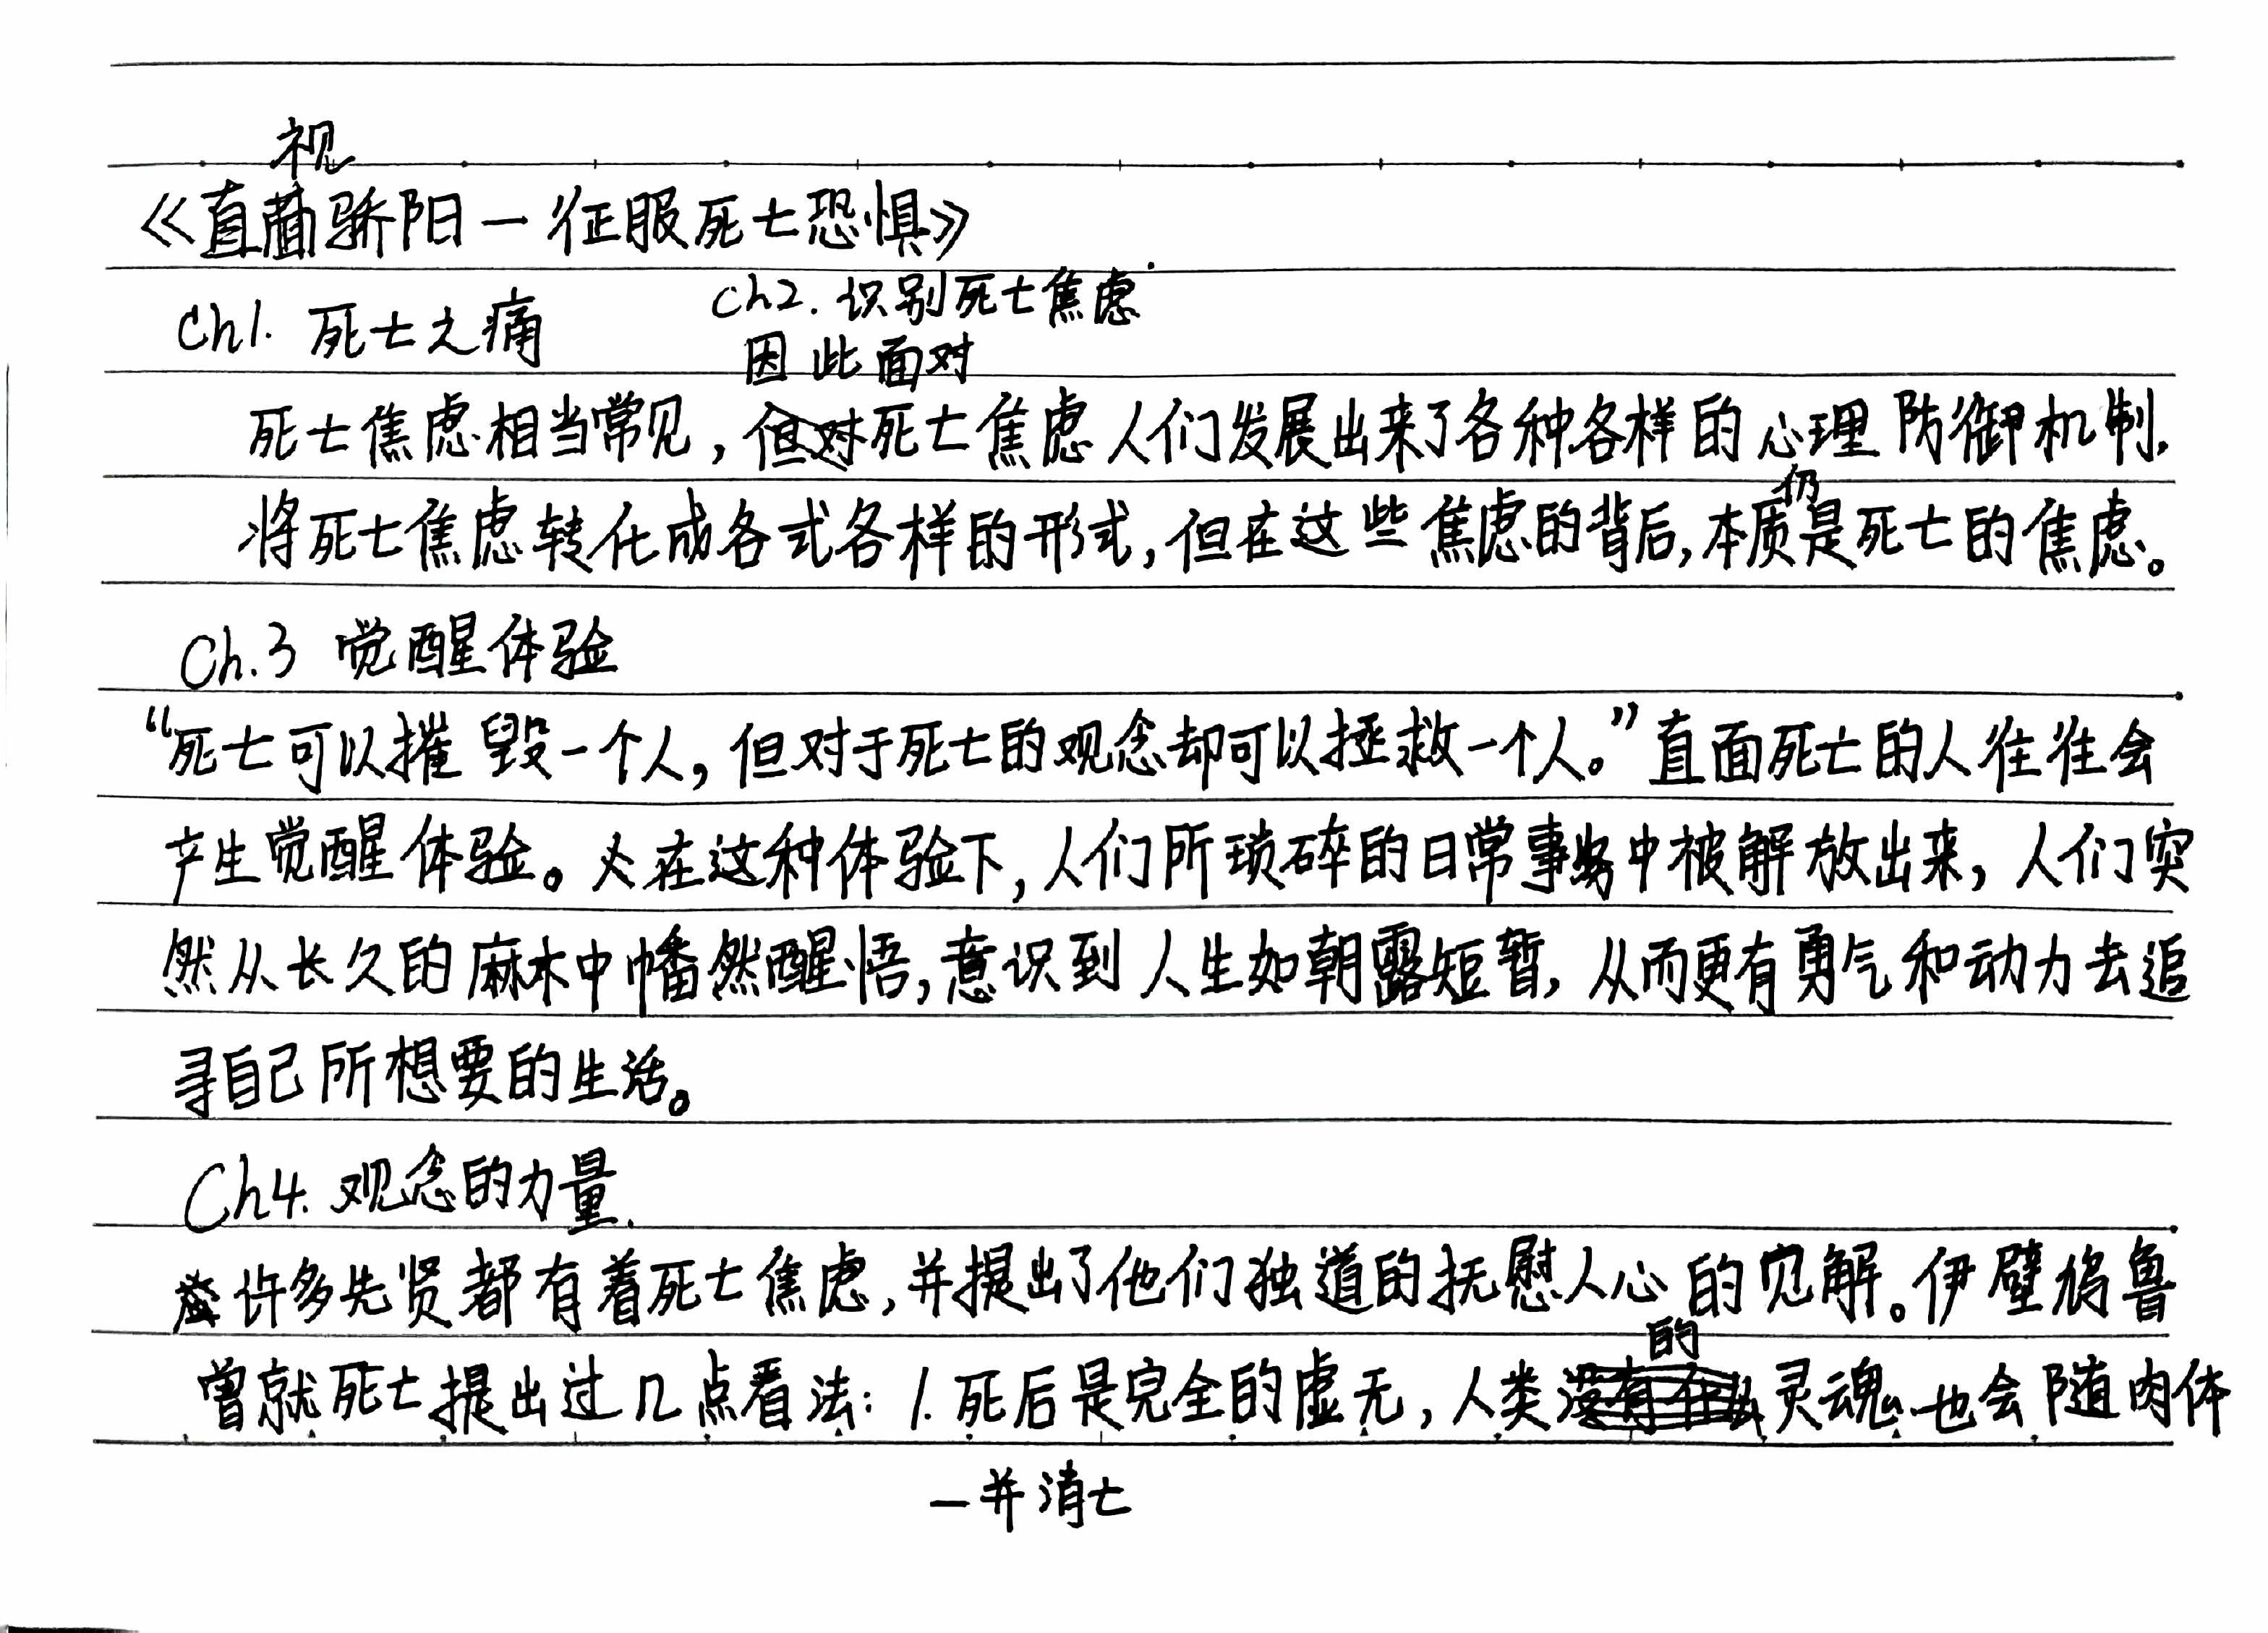 视
《直面骄阳一征服死亡恐惧》
Ch1. 死亡之痛
Ch2. 识别死亡焦虑
因此面对
死亡焦虑相当常见，但对死亡焦虑人们发展出来了各种各样的心理防御机制，
仍
将死亡焦虑转化成各式各样的形式，但在这些焦虑的背后，本质是死亡的焦虑。
Ch.3 觉醒体验
“死亡可以摧毁一个人，但对于死亡的观念却可以拯救一个人。”直面死亡的人往往会
产生觉醒体验。在这种体验下，人们所琐碎的日常事务中被解放出来，人们突
然从长久的麻木中幡然醒悟，意识到人生如朝露短暂，从而更有勇气和动力去追
寻自己所想要的生活。
Ch4. 观念的力量.
许多先贤都有着死亡焦虑，并提出了他们独道的抚慰人心的见解。伊壁鸠鲁
的
曾就死亡提出过几点看法：1. 死后是完全的虚无，人类灵魂也会随肉体
一并消亡